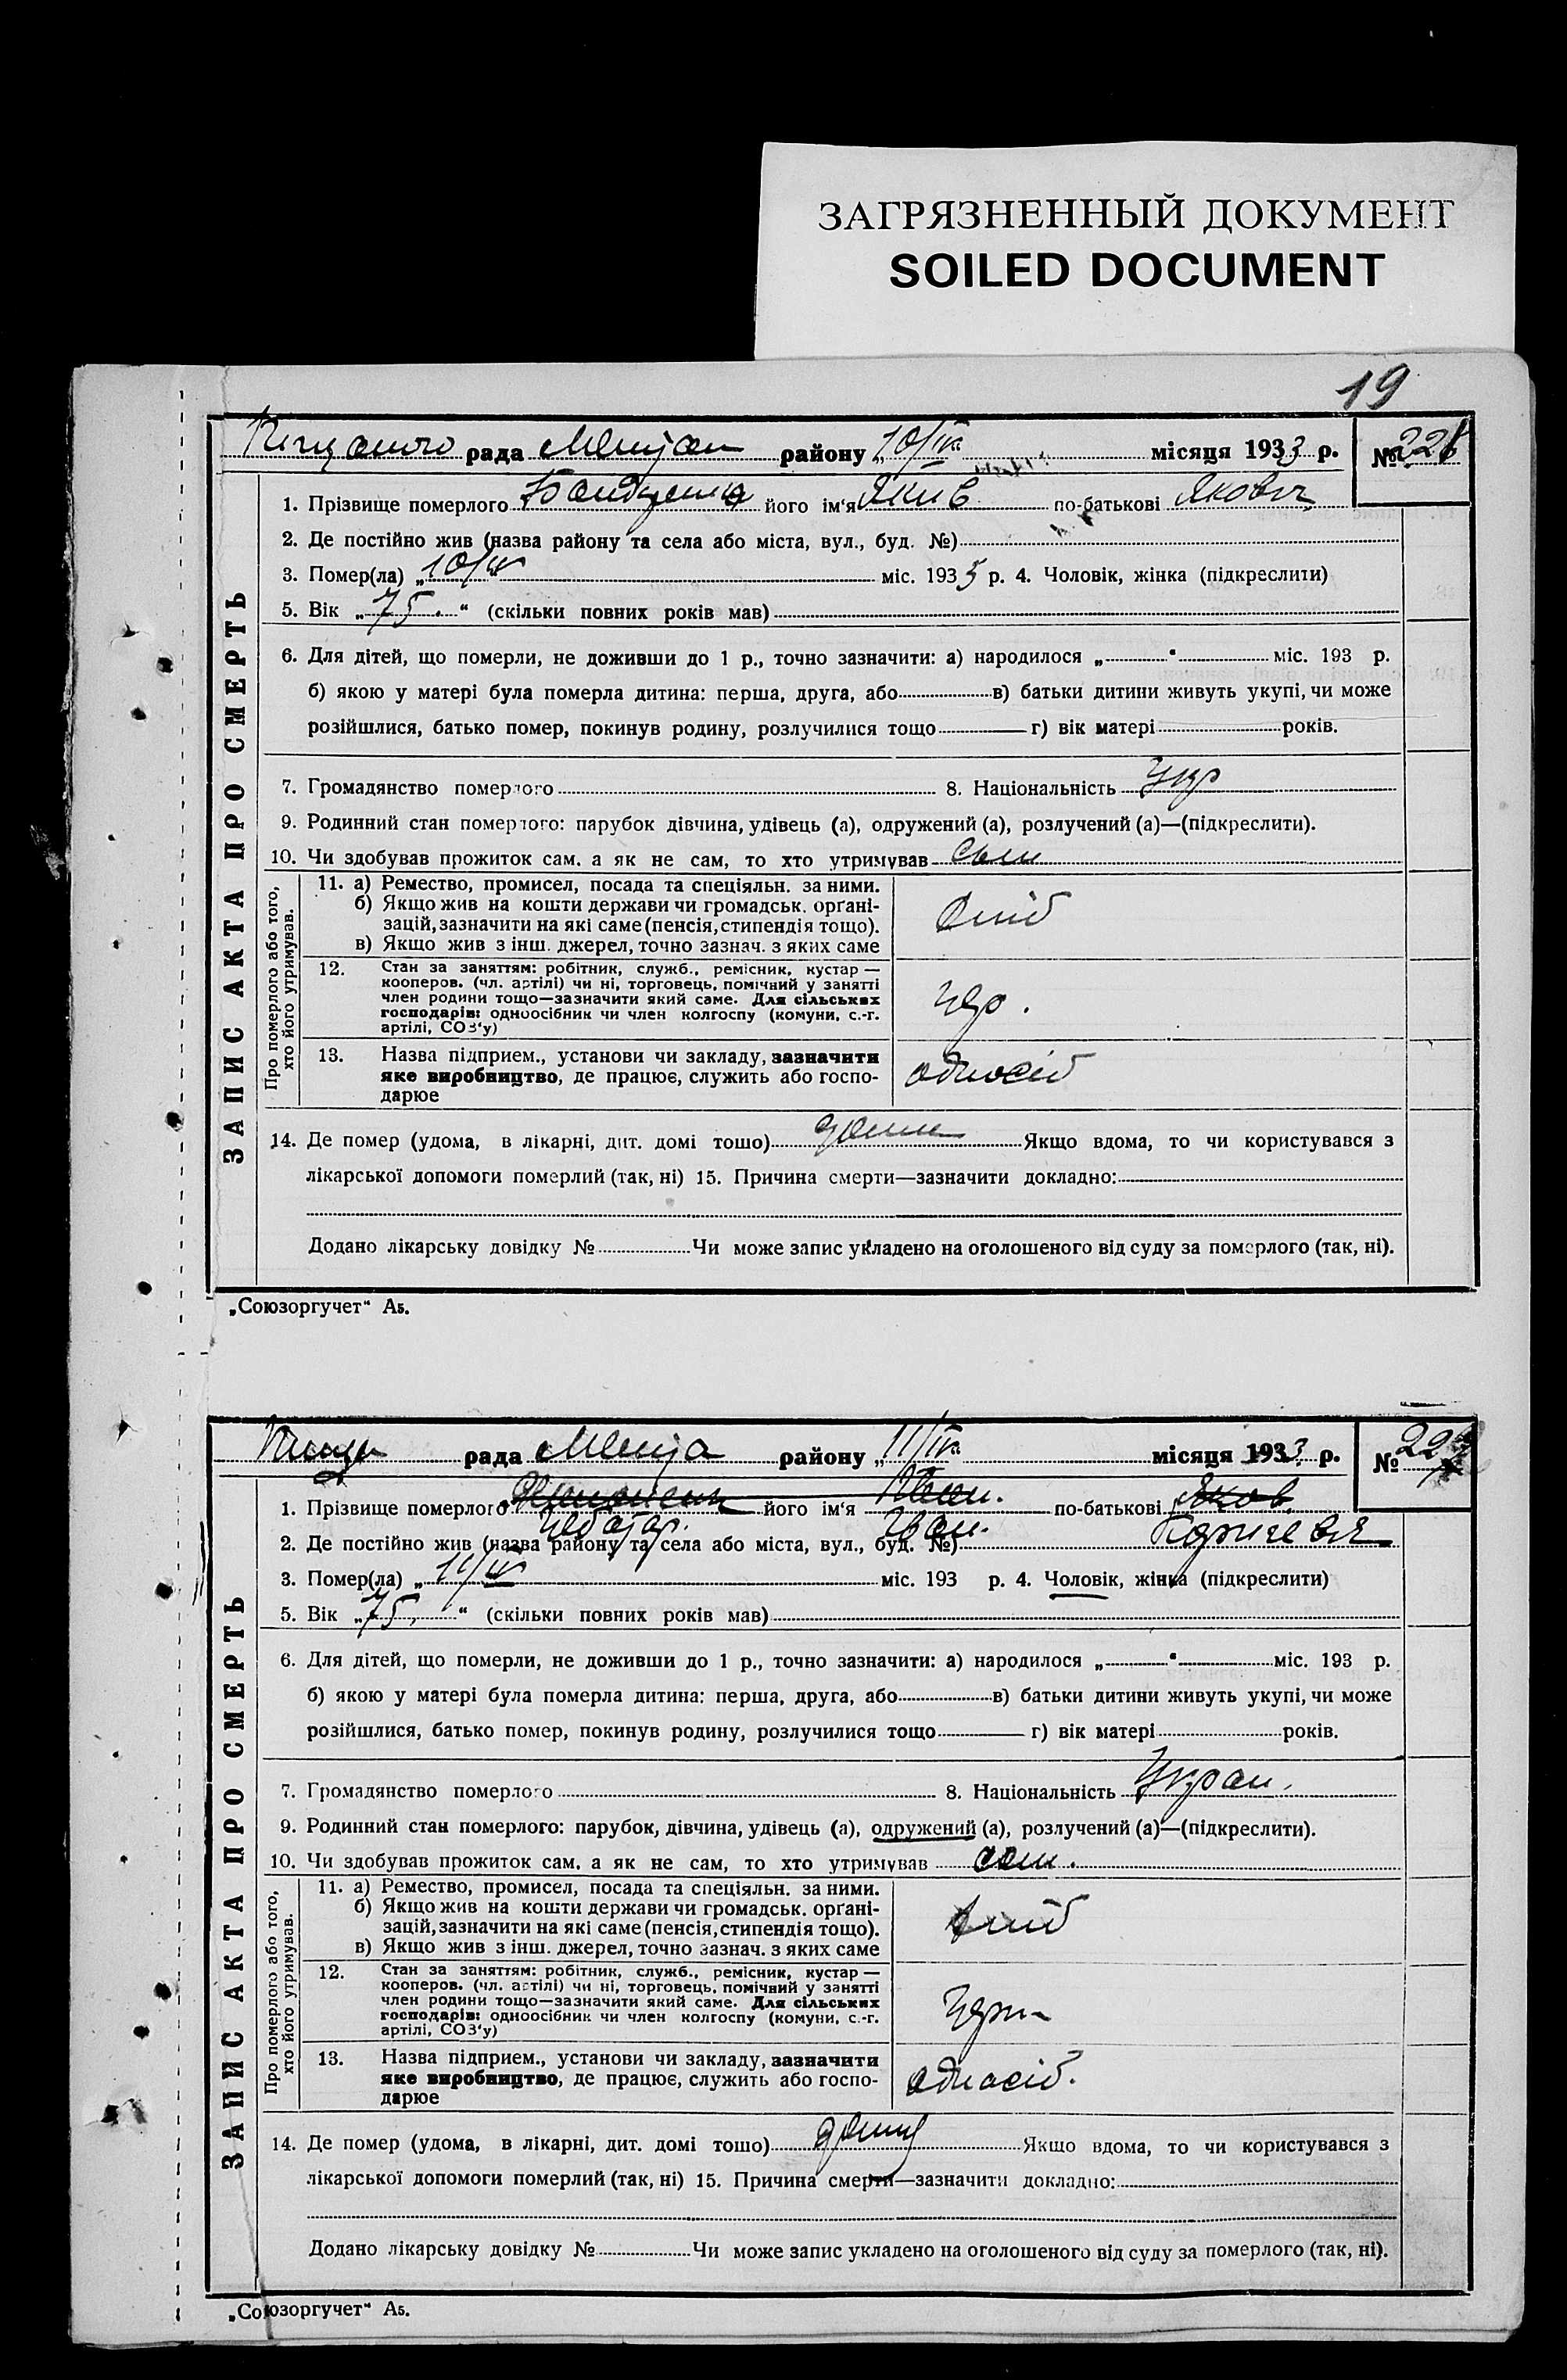 ЗАГРЯЗНЕННЫЙ ДОКУМЕНТ
SOILED DOCUMENT
19
рада района 10/IV місяця 1933 р. №
ЗАПИС АКТА ПРО СМЕРТЬ
1. Прізвище померлого його ім‘я Якив по-батькові Якович
2. Де постійно жив (назва району та села або міста, вул., буд. №)
3. Помер(ла) „10/IV міс. 1933 р. 4. Чоловік, жінка (підкреслити)
5. Вік „75.“ (скільки повних років мав)
6. Для дітей, що померли, не доживши до 1 р., точно зазначити: а) народилося „ “ міс. 193 р.
б) якою у матері була померла дитина: перша, друга, або в) батьки дитини живуть укупі, чи може
розійшлися, батько помер, покинув родину, розлучилися тощо г) вік матері років.
7. Громадянство померлого 8. Національність Укр
9. Родинний стан померлого: парубок дівчина, удівець (а), одружений (а), розлучений (а)—(підкреслити).
10. Чи здобував прожиток сам, а як не сам, то хто утримував
Про померлого або того, хто його утримував.
11. а) Ремество, промисел, посада та спеціяльн. за ними.
б) Якщо жив на кошти держави чи громадськ. орґані-
зацій, зазначити на які саме (пенсія, стипендія тощо).
в) Якщо жив з інш. джерел, точно зазнач. з яких саме
12. Стан за заняттям: робітник, служб., ремісник, кустар —
кооперов. (чл. артілі) чи ні, торговець, помічний у занятті
член родини тощо—зазначити який саме. Для сільських
господарів: одноосібник чи член колгоспу (комуни, с.-г.
артілі, СОЗ‘у)
13. Назва підприєм., установи чи закладу, зазначити
яке виробництво, де працює, служить або госпо-
дарює
одноосіб
14. Де помер (удома, в лікарні, дит. домі тощо) Якщо вдома, то чи користувався з
лікарської допомоги померлий (так, ні) 15. Причина смерти—зазначити докладно:
Додано лікарську довідку № Чи може запис укладено на оголошеного від суду за померлого (так, ні).
„Союзоргучет“ А5.
рада района „11/IV місяця 1933 р. №
ЗАПИС АКТА ПРО СМЕРТЬ
1. Прізвище померлого його ім‘я по-батькові Яков
Чеботар. Иван.
2. Де постійно жив (назва району та села або міста, вул., буд. №)
3. Помер(ла) „11/IV міс. 193 р. 4. Чоловік, жінка (підкреслити)
5. Вік „75.“ (скільки повних років мав)
6. Для дітей, що померли, не доживши до 1 р., точно зазначити: а) народилося „ “ міс. 193 р.
б) якою у матері була померла дитина: перша, друга, або в) батьки дитини живуть укупі, чи може
розійшлися, батько помер, покинув родину, розлучилися тощо г) вік матері років.
7. Громадянство померлого 8. Національність Украи.
9. Родинний стан померлого: парубок, дівчина, удівець (а), одружений (а), розлучений (а)—(підкреслити).
10. Чи здобував прожиток сам, а як не сам, то хто утримував сам.
Про померлого або того, хто його утримував.
11. а) Ремество, промисел, посада та спеціяльн. за ними.
б) Якщо жив на кошти держави чи громадськ. орґані-
зацій, зазначити на які саме (пенсія, стипендія тощо).
в) Якщо жив з інш. джерел, точно зазнач. з яких саме
12. Стан за заняттям: робітник, служб., ремісник, кустар —
кооперов. (чл. артілі) чи ні, торговець, помічний у занятті
член родини тощо—зазначити який саме. Для сільських
господарів: одноосібник чи член колгоспу (комуни, с.-г.
артілі, СОЗ‘у)
13. Назва підприєм., установи чи закладу, зазначити
яке виробництво, де працює, служить або госпо-
дарює
одноосіб.
14. Де помер (удома, в лікарні, дит. домі тощо) Якщо вдома, то чи користувався з
лікарської допомоги померлий (так, ні) 15. Причина смерти—зазначити докладно:
Додано лікарську довідку № Чи може запис укладено на оголошеного від суду за померлого (так, ні).
„Союзоргучет“ А5.